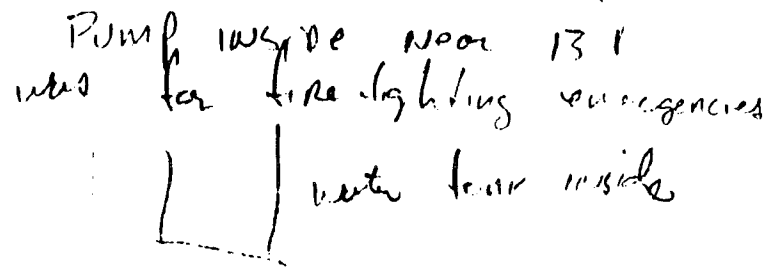 Pump inside near 131
was for firefighting emergencies
water from inside